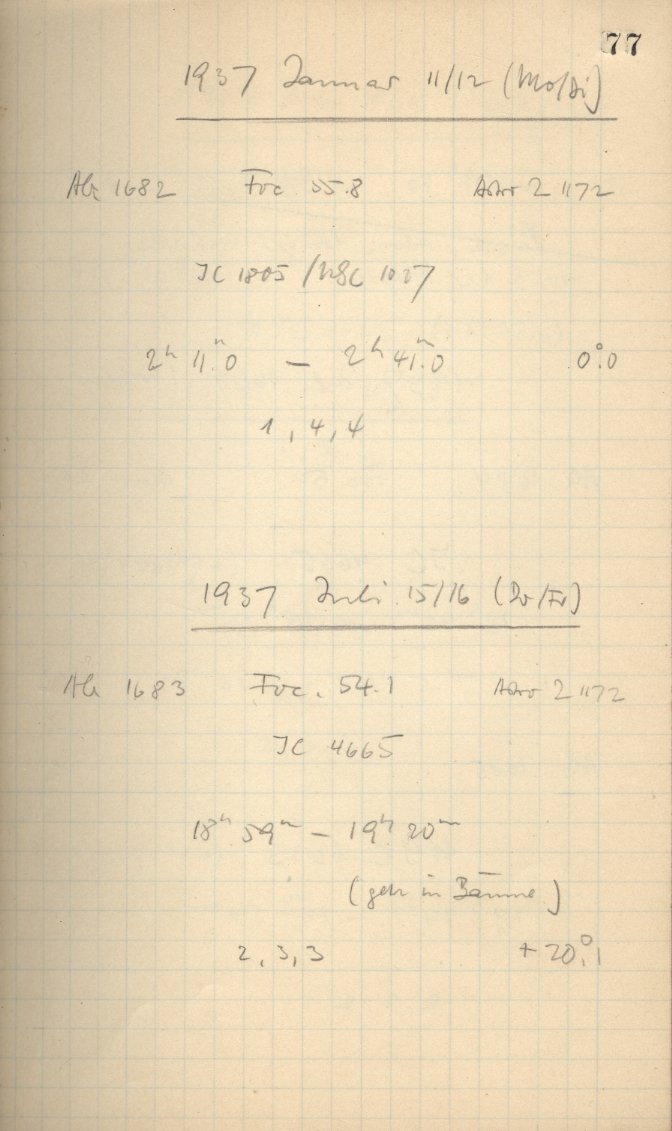 77
1937 Januar 11/12 (Mo/Di)
Ak 1682 Foc. 55.8 Astro 2 1172
IC 1805 / NGC 1027
2h 11m.0 — 2h 41m.0 0°.0
1, 4, 4
1937 Juli 15/16 (Do/Fr)
1683 Foc. 54.1 Astro 2 1172
IC 4665
18h 59m — 19h 20m
(geht in Bäume)
2, 3, 3 + 20°.1